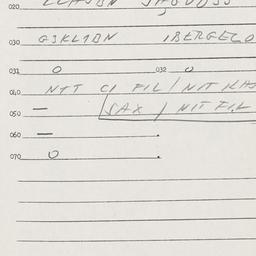 020
030 GSKLIBN IBERGELO
031 O 032 O
040 NTT CI FIL / NIT KAS
050 — SAX / NIT FIL
060 —
070 O